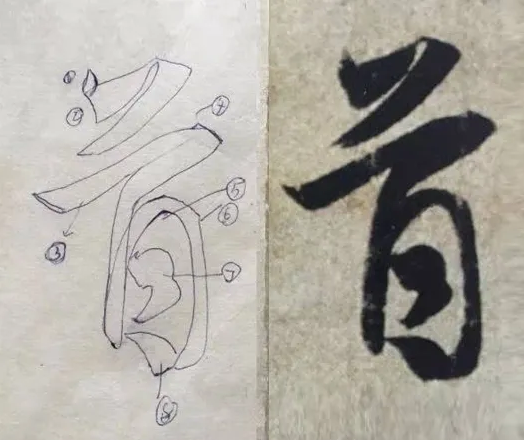 ①
②
④
⑤
⑥
③
⑦
⑧
首
首